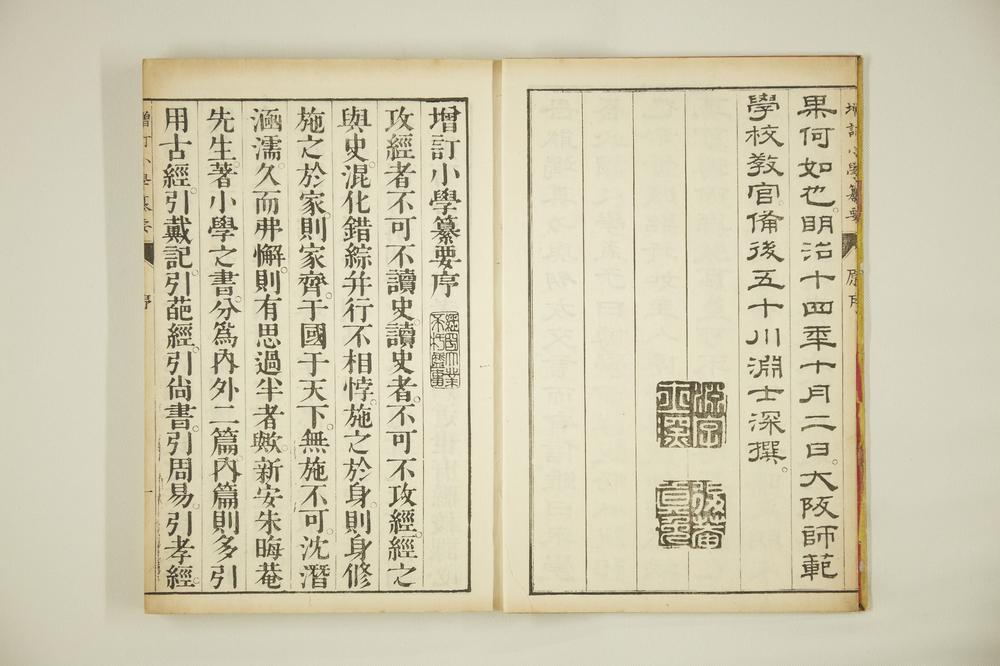 果何如也。明治十四年十月二日。大阪師範
學校敎官。備後五十川淵士深撰。
增訂小學纂要
序
增訂小學纂要序
攻經者不可不讀史。讀史者。不可不攻經。經之
與史。混化錯綜。并行不相悖。施之於身。則身修。
施之於家。則家齊。于國于天下。無施不可。沈潛
涵濡。久而弗懈。則有思過半者歟。新安朱晦菴
先生。著小學之書。分爲內外二篇。內篇則多引
用古經。引戴記。引葩經。引尙書。引周易。引孝經。
增訂小學纂要
序
一